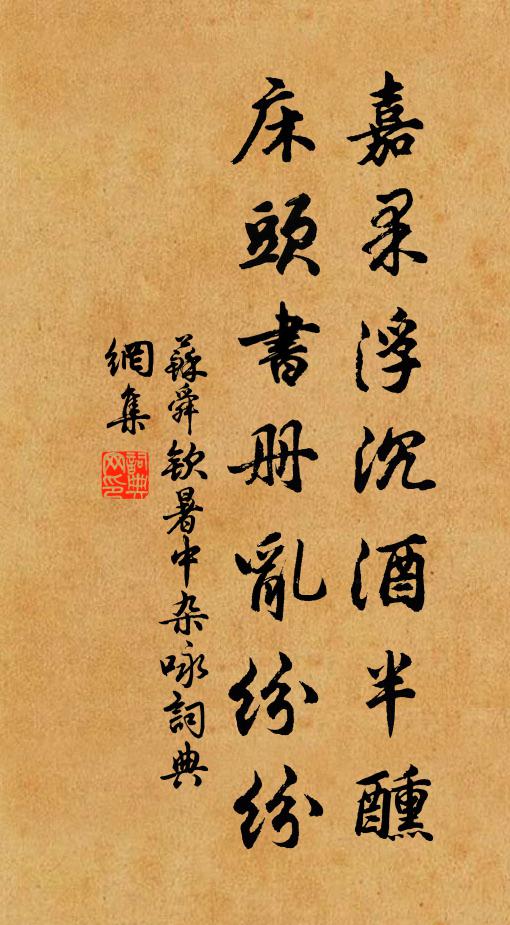 嘉果浮沉酒半醺
床頭書册亂紛紛
蘇舜欽暑中杂咏詞典
網集
詞典網印